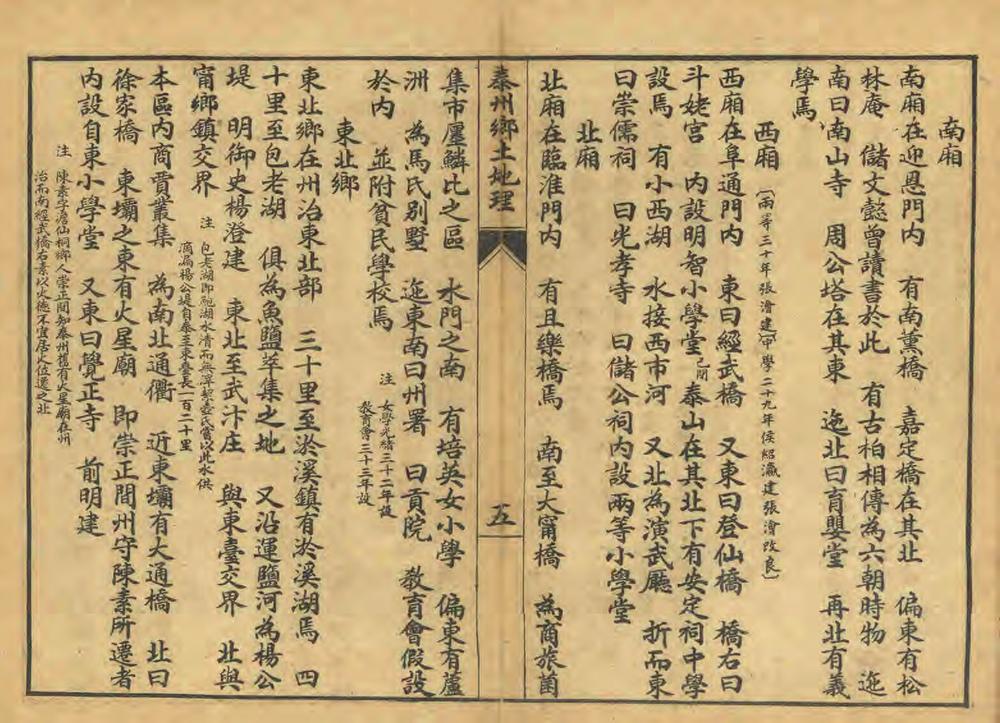 南廂
南廂在迎恩門內　有南薰橋　嘉定橋在其北　偏東有松
林庵　儲文懿曾讀書於此　有古柏相傳為六朝時物　迤
南曰南山寺　周公塔在其東　迤北曰育嬰堂　再北有義
學焉
西廂〔兩等三十年張澮建中學二十九年侯紹瀛建張澮改良〕
西廂在阜通門內　東曰經武橋　又東曰登仙橋　橋右曰
斗姥宮　內設明智小學堂已閉　泰山在其北下有安定祠中學
設焉　有小西湖　水接西市河　又北為演武廳　折而東
曰崇儒祠　曰光孝寺　曰儲公祠內設兩等小學堂
北廂
北廂在臨淮門內　有且樂橋焉　南至大甯橋　為商旅菌
泰州鄉土地理　五
集市廛鱗比之區　水門之南　有培英女小學　偏東有蘆
洲　為馬氏別墅　迤東南曰州署　曰貢院　教育會假設
於內　並附貧民學校焉　注　女學光緒三十二年設
教育會三十三年設
東北鄉
東北鄉在州治東北部　三十里至淤溪鎮有淤溪湖焉　四
十里至包老湖　俱為魚鹽萃集之地　又沿運鹽河為楊公
堤　明御史楊澄建　東北至武汴庄　與東臺交界　北與
甯鄉鎮交界　注　包老湖即鮑湖水清而無滓契壺氏嘗以此水供
滴漏楊公堤自泰至東臺長一百二十里
本區內商賈叢集　為南北通衢　近東壩有大通橋　北曰
徐家橋　東壩之東有火星廟　即崇正間州守陳素所遷者
內設自東小學堂　又東曰覺正寺　前明建
注　陳素字澹仙桐鄉人崇正間知泰州舊有火星廟在州
治而南經武橋右素以火德不宜居火位遷之北